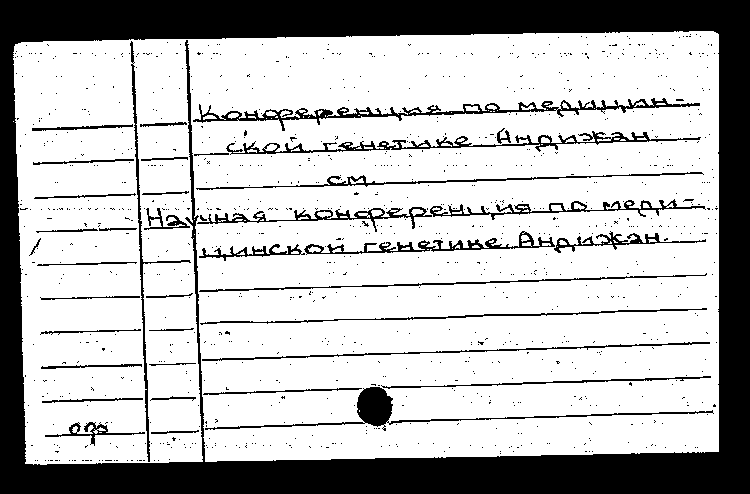 Конференция по медицин-
ской генетике Андижан.
см.
Научная конференция по меди-
цинской генетике. Андижан.